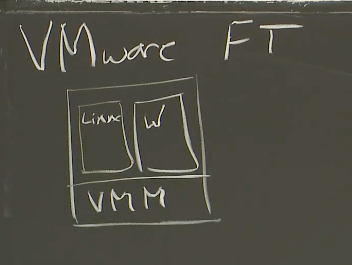 VMware FT
Linux W
VMM